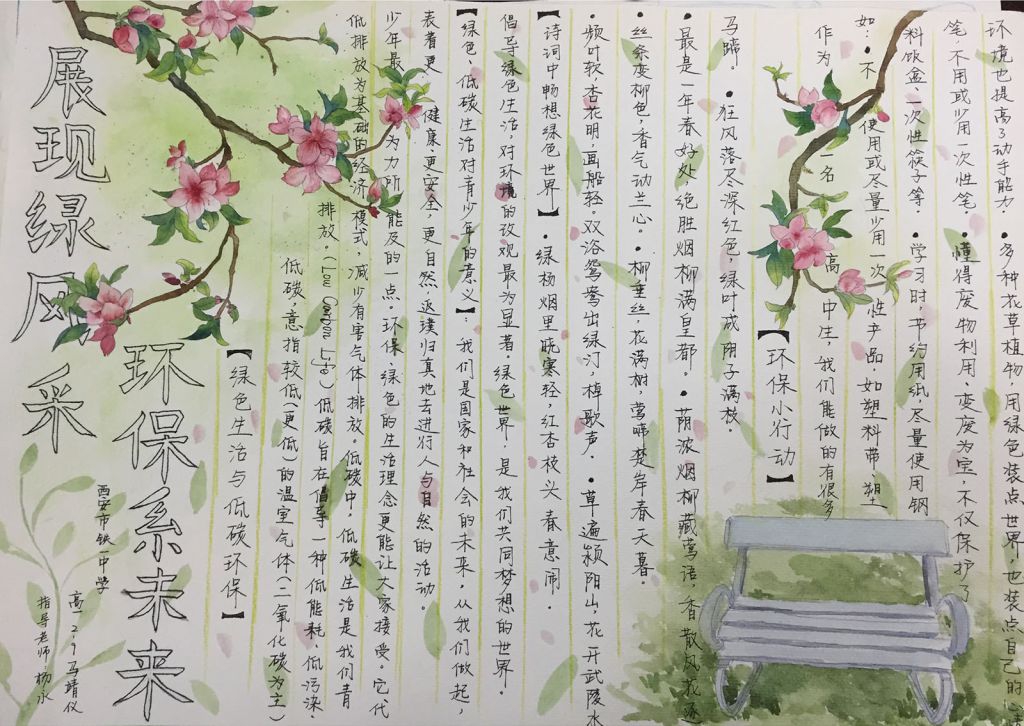 展现绿风采
环保系未来
西安市铁一中学
高一2.9马靖仪
指导老师:杨永
【绿色生活与低碳环保】
低碳,意指较低(更低)的温室气体(二氧化碳为主)
排放。(Low Carbon Life)低碳旨在倡导一种低能耗、低污染、
低排放为基础的经济模式,减少有害气体排放。低碳中,低碳生活是我们青
少年最为力所能及的一点。环保、绿色的生活理念更能让大家接受。它代
表着更健康、更安全、更自然、返璞归真地去进行人与自然的活动。
【绿色、低碳生活对青少年的意义】:我们是国家和社会的未来,从我们做起,
倡导绿色生活,对环境的改观最为显著。绿色世界,是我们共同梦想的世界。
【诗词中畅想绿色世界】•绿杨烟里晓寒轻,红杏枝头春意闹。
•频叶软杏花明,画船轻。双浴鸳鸯出绿汀,棹歌声。•草遍颍阳山,花开武陵水
•丝条变柳色,香气动兰心。•柳垂丝,花满树,莺啼楚岸春一天暮。
最是一年春好处,绝胜烟柳满皇都。•荫浓烟柳藏莺语,香散风花逐
马蹄。•狂风落尽深红色,绿叶成阴子满枝。
【环保小行动】
作为一名高中生,我们能做的有很多
如:•不使用或尽量少用一次性产品,如塑料带、塑
料饭盒、一次性筷子等。•学习时,节约用纸,尽量使用钢
笔,不用或少用一次性笔。•懂得废物利用、变废为宝,不仅保护了
环境也提高了动手能力。•多种花草植物,用绿色装点世界,也装点自己的心